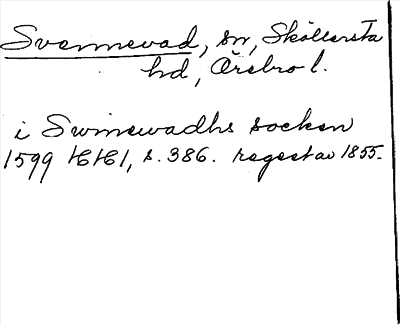 Svennevad, sn, Skållersta
hd, Örebro l.
i Swinewadhs socken
1599 HH1, s. 386. regest av 1855.